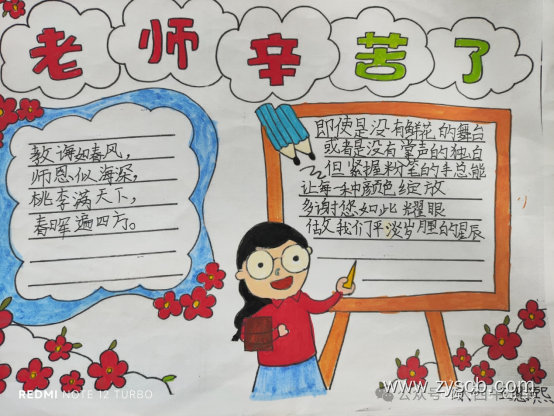 老师辛苦了
教诲如春风,
师恩似海深,
桃李满天下,
春晖遍四方。
即使是没有鲜花的舞台
或者是没有掌声的独白
但紧握粉笔的手总能
让每一种颜色绽放
多谢您如此耀眼
做我们平淡岁月里的星辰
REDMI NOTE 12 TURBO
公众号
www.zyscb.com